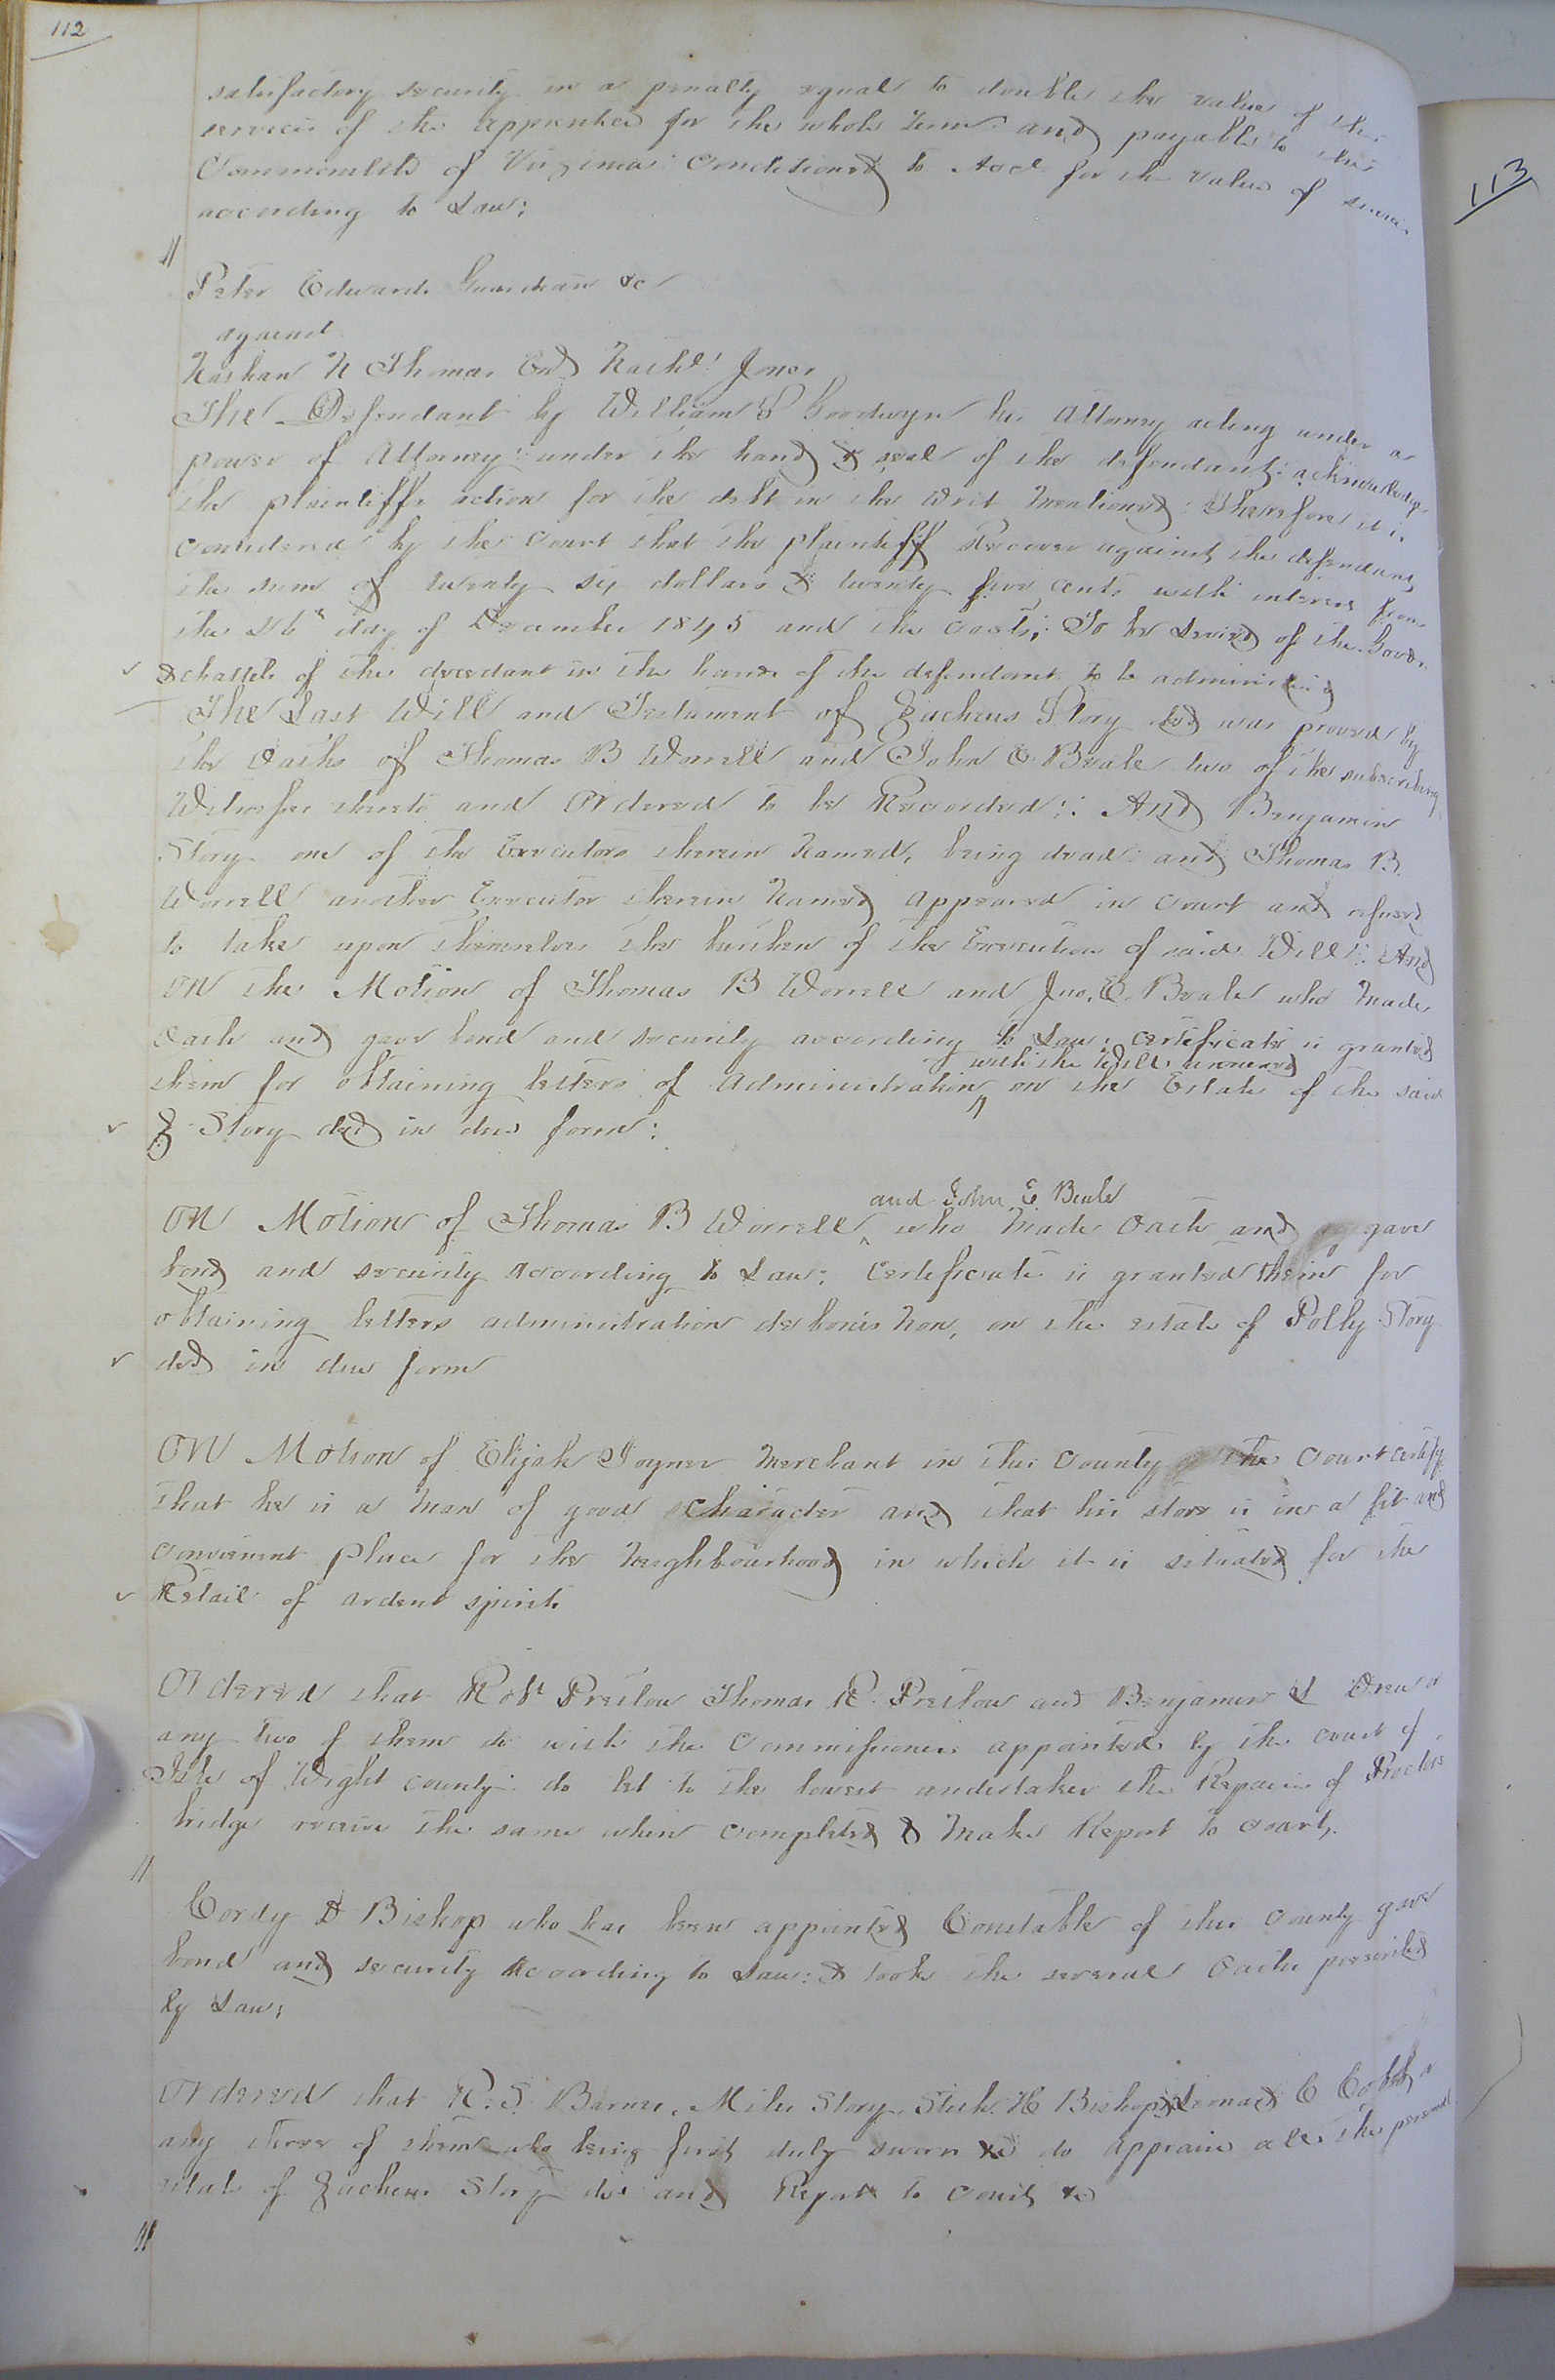 112
satisfactory security in a penalty equal to double the value of the
services of the apprentice for the whole term: and payable to the
Commonwealth of Virginia: Conditioned to Acct for the value of services
according to Law:
Peter Edwards Guardian &c
against
Nathan N Thomas End Nathl: Jones
The Defendant by William S Goodwyn his Attorney acting under a
power of Attorney: under the hand & seal of the defendant: acknowledge
the plaintiffs action for the debt in the Writ Mentioned: Therefore it is
considered by the Court that the plaintiff Recover against the defendant
the sum of twenty six dollars & twenty five cents with interest from
the 26th day of December 1845 and the costs: To be Levied of the Goods
& chattels of the decedant in the hands of the defendant to be administered
The Last Will and Testament of Zacheus Story decd was proved by
the Oaths of Thomas B Worrell and John E Beale two of the subscribing
Witnesses thereto and Ordered to be Recorded: And Benjamin
Story one of the Executors therein Named, being dead: and Thomas B.
Worrell another Executor therein Named appeared in Court and refused
to take upon themselves the burthen of the Execution of said Will: And
ON the Motion of Thomas B Worrell and Jno. E. Beale who Made
Oath and gave bond and security according to Law: certificate is granted
them for obtaining letters of Administration with the Will annexed on the Estate of the said
Z Story decd in due form:
ON Motion of Thomas B Worrell and John E Beale who Made Oath and gave
bond and security According to Law: Certificate is granted them for
obtaining letters administration debonis Non, on the estate of Polly Story
decd in due form
ON Motion of Elijah Joyner Merchant in this County the Court certify
that he is a Man of good character and that his store is in a fit and
convenient place for the Neighbourhood in which it is situated for the
Retail of ardent spirits
Ordered that Robt Preslow Thomas R. Preslow and Benjamin Drew or
any two of them do with the Commissioners appointed by the court of
Isle of Wight county: do let to the lowest undertaker the Repairs of Proctors
bridge receive the same when completed & Make Report to court,
Cordy D Bishop who has been appointed Constable of this County gave
bond and security According to Law: & took the several Oaths prescribed
by Law:
Ordered that R. S. Barnes, Miles Story, Steth. H Bishop & Lemuel C Cobb or
any three of them who being first duly sworn &c do appraise all the personal
estate of Zacheus Story decd and Report to Court &c
113